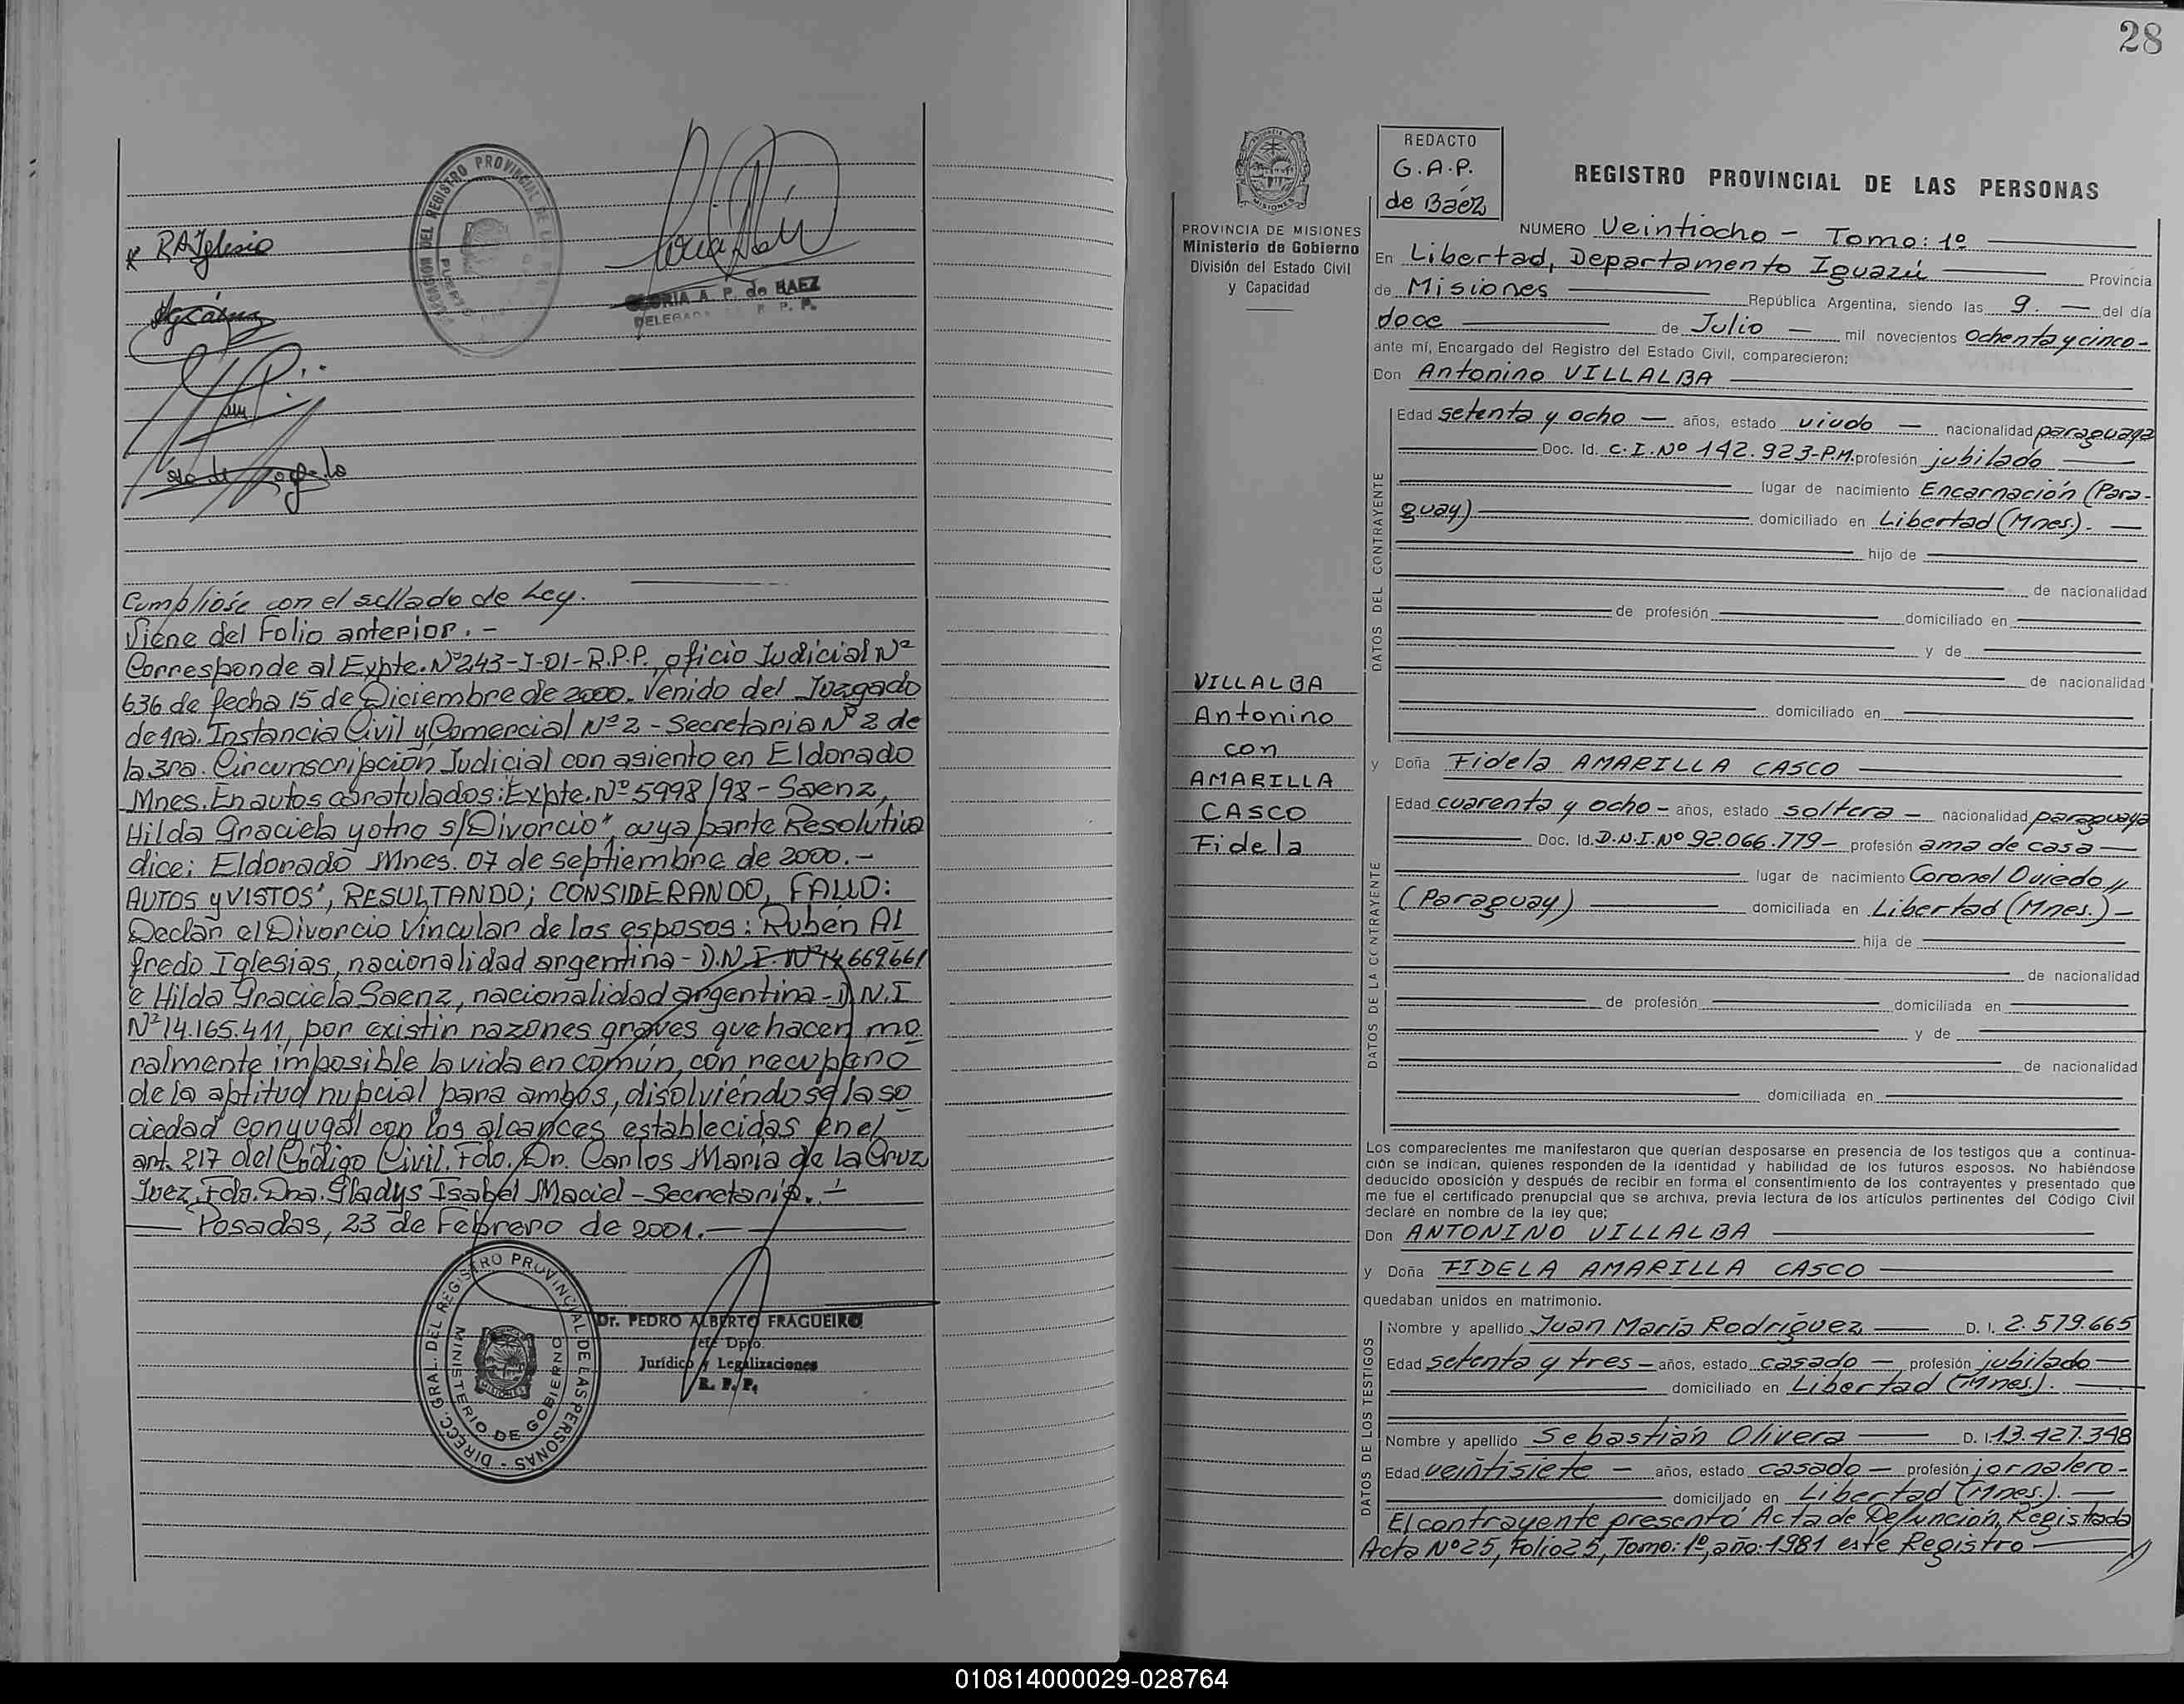 R A Iglesia
REGISTRO PROVINCIAL DE
GLORIA A. P. de BAEZ
DELEGADA R. P. P.
Cumplióse con el sellado de Ley.
Viene del Folio anterior. -
Corresponde al Expte. Nº 243-I-01-R.P.P., oficio Judicial Nº
636 de fecha 15 de Diciembre de 2000. Venido del Juzgado
de 1ra. Instancia Civil y Comercial Nº 2 - Secretaria Nº 2 de
la 3ra. Circunscripción Judicial con asiento en Eldorado
Mnes. En autos caratulados: Expte. Nº 5998/98 - Saenz,
Hilda Graciela y otro s/Divorcio", cuya parte Resolutiva
dice: Eldorado Mnes. 07 de septiembre de 2000. -
AUTOS y VISTOS', RESULTANDO; CONSIDERANDO, FALLO:
Declar el Divorcio Vincular de los esposos: Ruben Al
fredo Iglesias, nacionalidad argentina - D.N.I. Nº 14.669.661
e Hilda Graciela Saenz, nacionalidad argentina - D.N.I
Nº 14.165.411, por existir razones graves que hacen mo
ralmente imposible la vida en común, con recupero
de la aptitud nupcial para ambos, disolviéndose la so
ciedad conyugal con los alcances establecidas en el
art. 217 del Código Civil. Fdo. Dr. Carlos Maria de la Cruz
Juez. Fdo. Dra. Gladys Isabel Maciel - Secretaria. -
Posadas, 23 de Febrero de 2001. -
DIRECC. GRAL. DEL REGISTRO PROVINCIAL DE LAS PERSONAS -
MINISTERIO DE GOBIERNO
Dr. PEDRO ALBERTO FRAGUEIRO
Jefe Dpto.
Jurídico y Legalizaciones
R. P. P.
28
PROVINCIA DE MISIONES
Ministerio de Gobierno
División del Estado Civil
y Capacidad
REDACTO
G.A.P.
de Báez
REGISTRO PROVINCIAL DE LAS PERSONAS
NUMERO Veintiocho - Tomo: 1º
En Libertad, Departamento Iguazú Provincia
de Misiones República Argentina, siendo las 9. - del día
doce de Julio - mil novecientos ochenta y cinco -
ante mí, Encargado del Registro del Estado Civil, comparecieron:
Don Antonino VILLALBA
DATOS DEL CONTRAYENTE
Edad setenta y ocho - años, estado viudo - nacionalidad paraguaya
Doc. Id. C.I. Nº 142.923-P.M. profesión jubilado
lugar de nacimiento Encarnación (Para-
guay) domiciliado en Libertad (Mnes.). -
hijo de
de nacionalidad
de profesión domiciliado en
y de
de nacionalidad
domiciliado en
VILLALBA
Antonino
con
AMARILLA
CASCO
Fidela
y Doña Fidela AMARILLA CASCO
DATOS DE LA CONTRAYENTE
Edad cuarenta y ocho - años, estado soltera - nacionalidad paraguaya
Doc. Id. D.N.I. Nº 92.066.779 - profesión ama de casa
lugar de nacimiento Coronel Oviedo
(Paraguay) domiciliada en Libertad (Mnes.) -
hija de
de nacionalidad
de profesión domiciliada en
y de
de nacionalidad
domiciliada en
Los comparecientes me manifestaron que querían desposarse en presencia de los testigos que a continua-
ción se indican, quienes responden de la identidad y habilidad de los futuros esposos. No habiéndose
deducido oposición y después de recibir en forma el consentimiento de los contrayentes y presentado que
me fue el certificado prenupcial que se archiva, previa lectura de los artículos pertinentes del Código Civil
declaré en nombre de la ley que;
Don ANTONINO VILLALBA
y Doña FIDELA AMARILLA CASCO
quedaban unidos en matrimonio.
DATOS DE LOS TESTIGOS
Nombre y apellido Juan María Rodríguez D. I. 2.579.665
Edad setenta y tres - años, estado casado - profesión jubilado
domiciliado en Libertad (Mnes.).
Nombre y apellido Sebastián Olivera D. I. 13.427.348
Edad veintisiete - años, estado casado - profesión jornalero -
domiciliado en Libertad (Mnes.). -
El contrayente presentó Acta de Defunción, Registrada
Acta Nº 25, Folio 25, Tomo: 1º, año 1981 este Registro
010814000029-028764